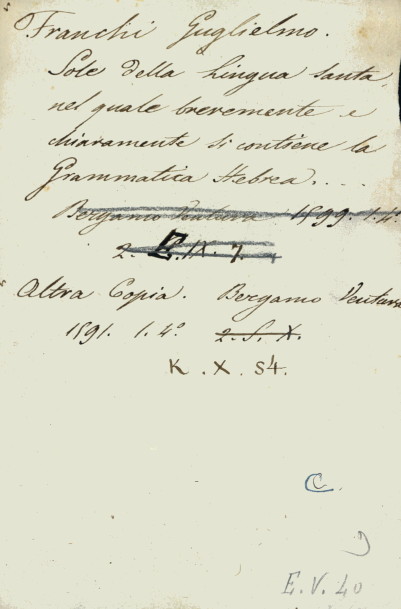 Franchi Guglielmo.
Sole della Lingua santa,
nel quale brevemente e
chiaramente si contiene la
Grammatica Hebrea. . . .
Bergamo Ventura 1599. 1.4º
2. IX. 7.
Altra Copia. Bergamo Ventura
1591. 1.4º 2. S. X.
K. X. S4.
C.
E. V. 40